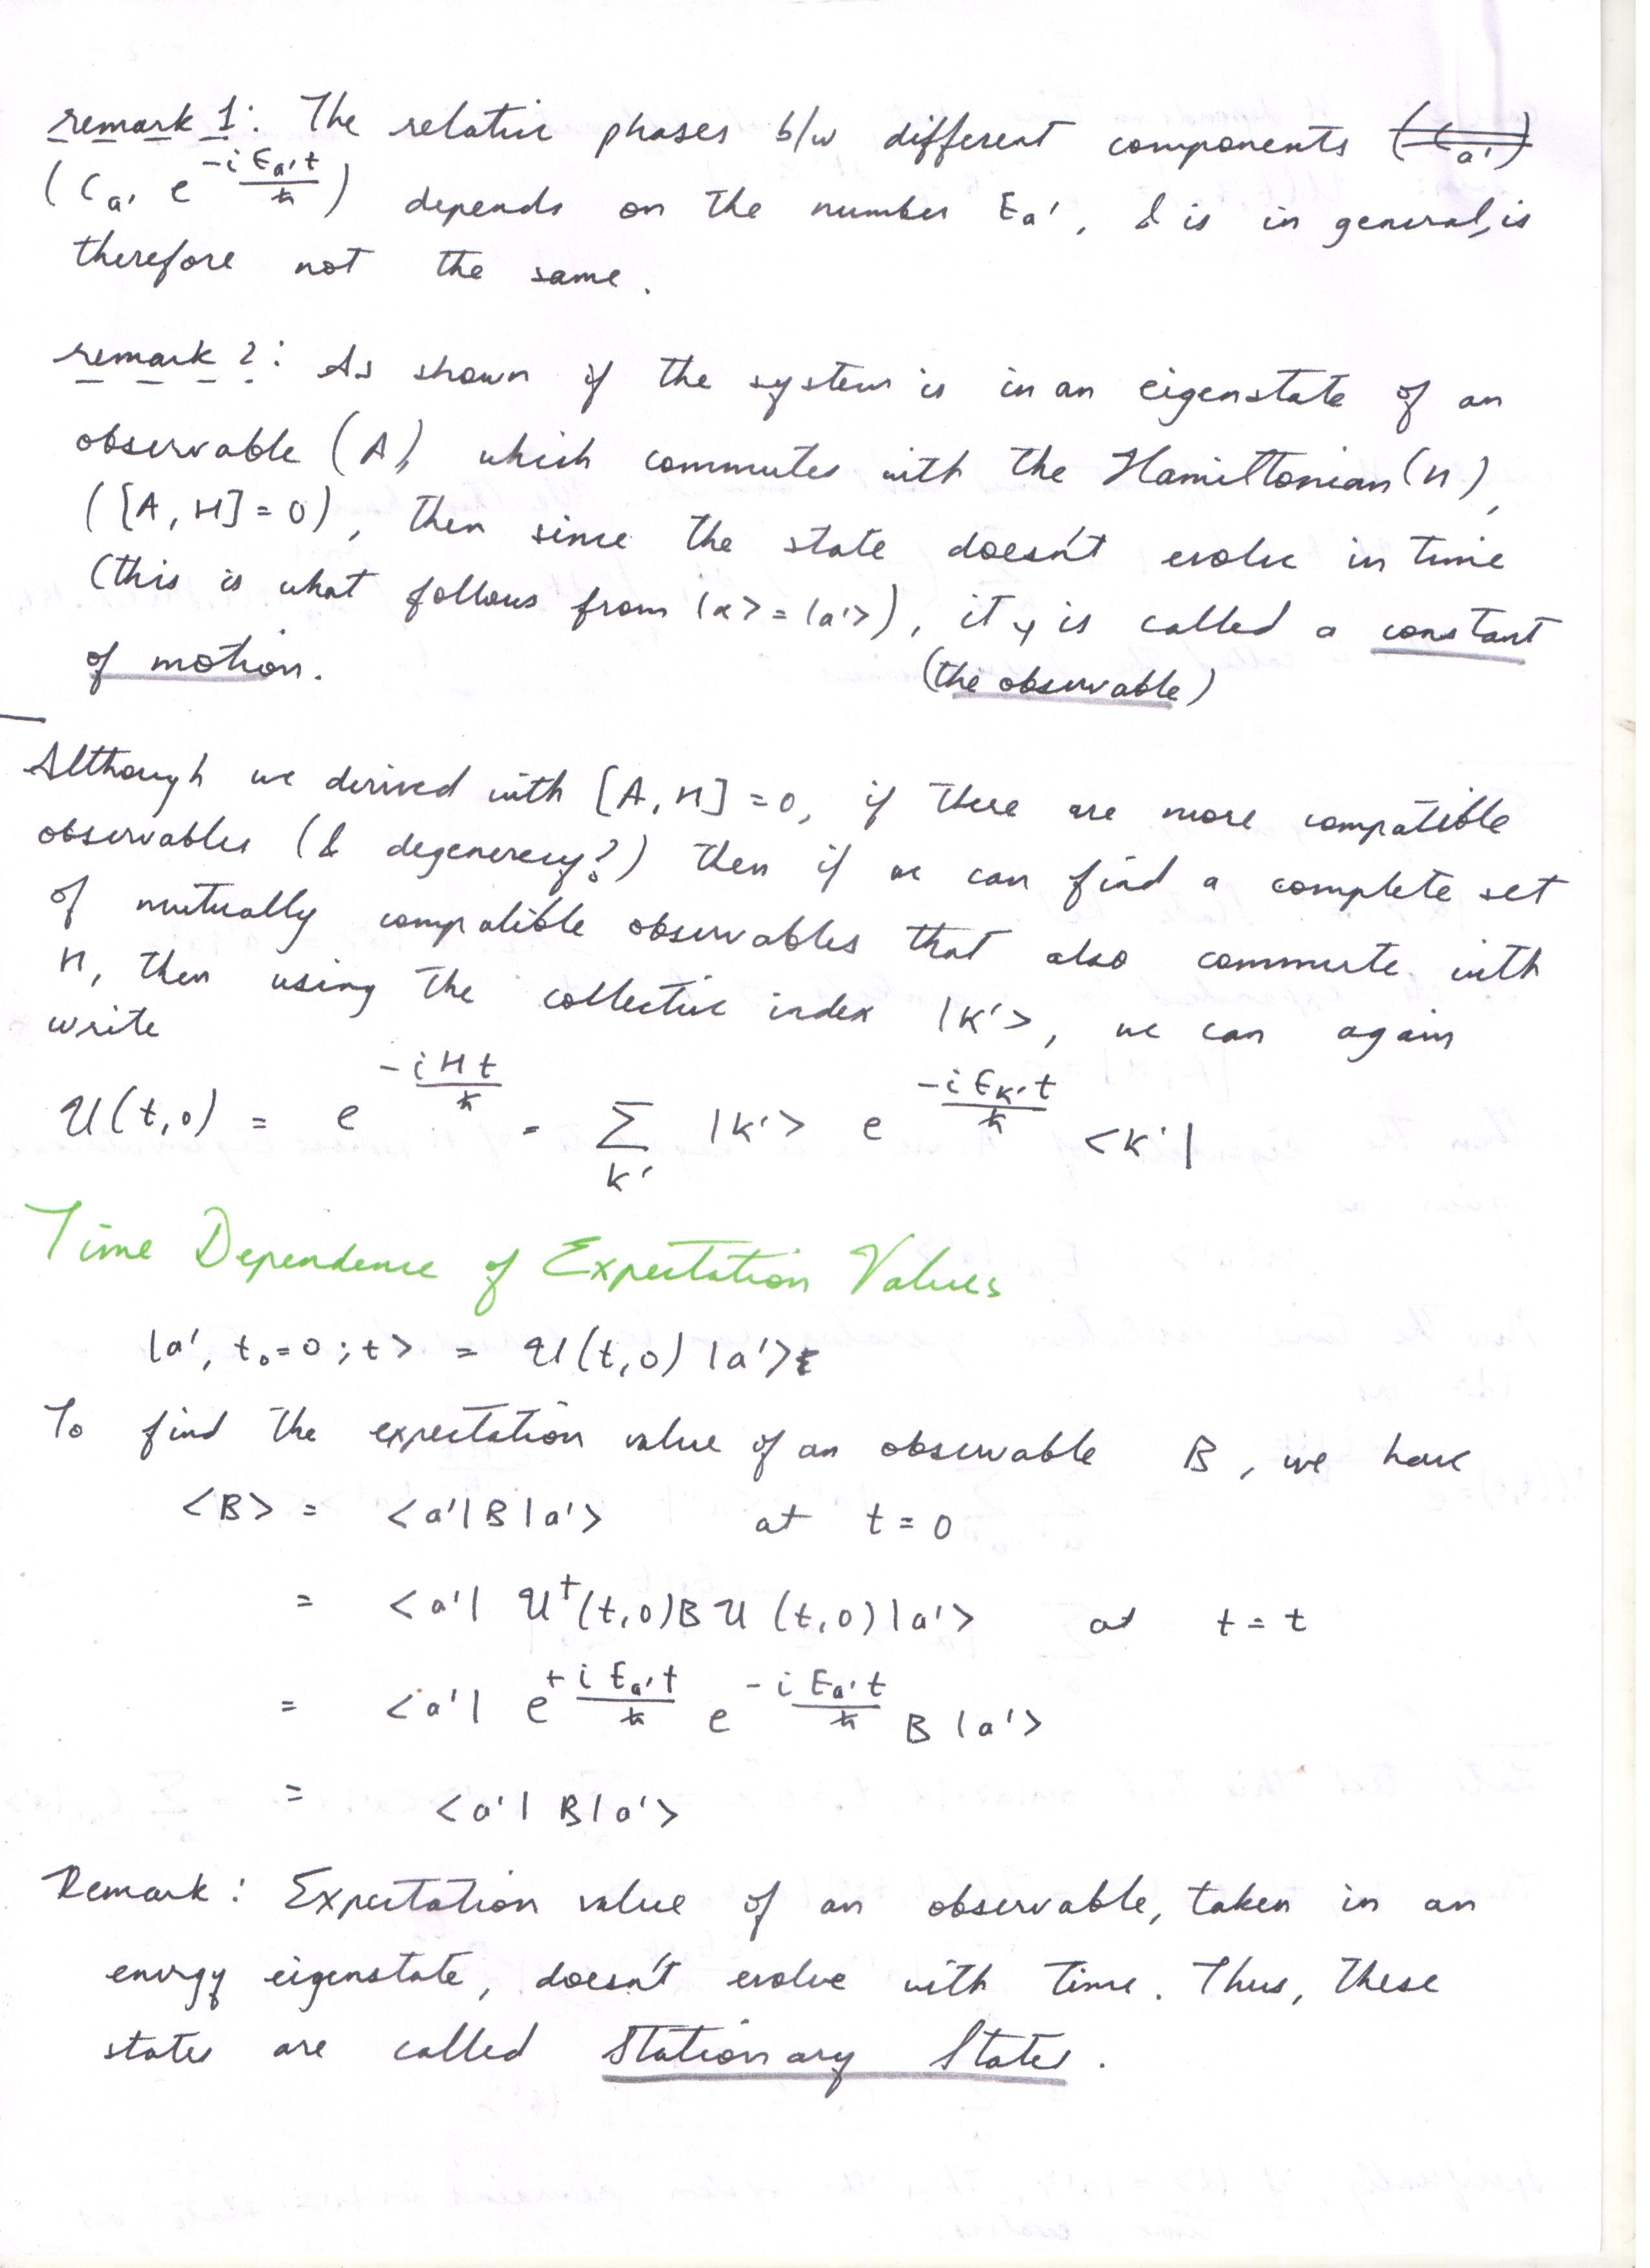 remark 1: The relative phases b/w different components (C_a')
(C_a' e^{-i E_a' t / ħ}) depends on the number E_a', & is in general, is
therefore not the same.
remark 2: As shown if the system is in an eigenstate of an
observable (A), which commutes with the Hamiltonian (H),
([A, H] = 0), then since the state doesn't evolve in time
(this is what follows from |α> = |a'>), it is called a constant
(the observable)
of motion.
Although we derived with [A, H] = 0, if there are more compatible
observables (& degenerecy?) then if we can find a complete set
of mutually compatible observables that also commute with
H, then using the collective index |K'>, we can again
write
U(t,0) = e^{-iHt/ħ} = Σ_{K'} |K'> e^{-i E_K' t / ħ} <K'|
Time Dependence of Expectation Values
|a', t₀=0; t> = U(t,0) |a'>
To find the expectation value of an observable B, we have
<B> = <a'|B|a'> at t = 0
= <a'| U†(t,0) B U (t,0) |a'> at t = t
= <a'| e^{+i E_a' t / ħ} e^{-i E_a' t / ħ} B |a'>
= <a'| B |a'>
Remark: Expectation value of an observable, taken in an
energy eigenstate, doesn't evolve with time. Thus, these
states are called Stationary States.